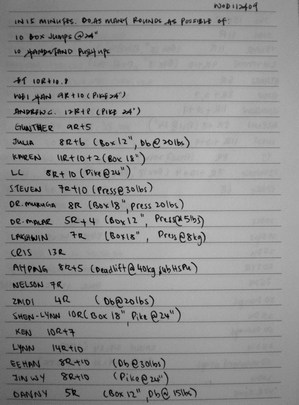 WOD 112409
IN 15 MINUTES. DO AS MANY ROUNDS AS POSSIBLE OF:
10 BOX JUMPS @ 24"
10 HANDSTAND PUSHUPS
10R+10.8
9R+10 (PIKE 24")
ANDREW C. 12R+8 (PIKE 24")
GUNTHER 9R+5
JULIA 8R+6 (Box 12", Db@20lbs)
KAREN 11R+10+2 (Box 18")
LL 8R+10 (Pike @ 24")
STEVEN 7R+10 (Press@30lbs)
DR. MURUGA 8R (Box 18", press 20lbs)
DR. MALAR 5R+4 (Box 12", Press@15lbs)
LAKHWIN 7R (Box 18", Press@8kg)
CRIS 13R
AH PANG 8R+5 (Deadlift @ 40kg sub HSPU)
NELSON 7R
ZAIDI 4R (Db@20lbs)
SHEN-LYNN 10R (Box 18", Pike @ 24")
KEN 10R+7
LYNN 14R+10
EEHAN 8R+10 (Db@30lbs)
JIN WY 8R+10 (Pike@24")
DANNY 5R (Box 12", Db@15lbs)